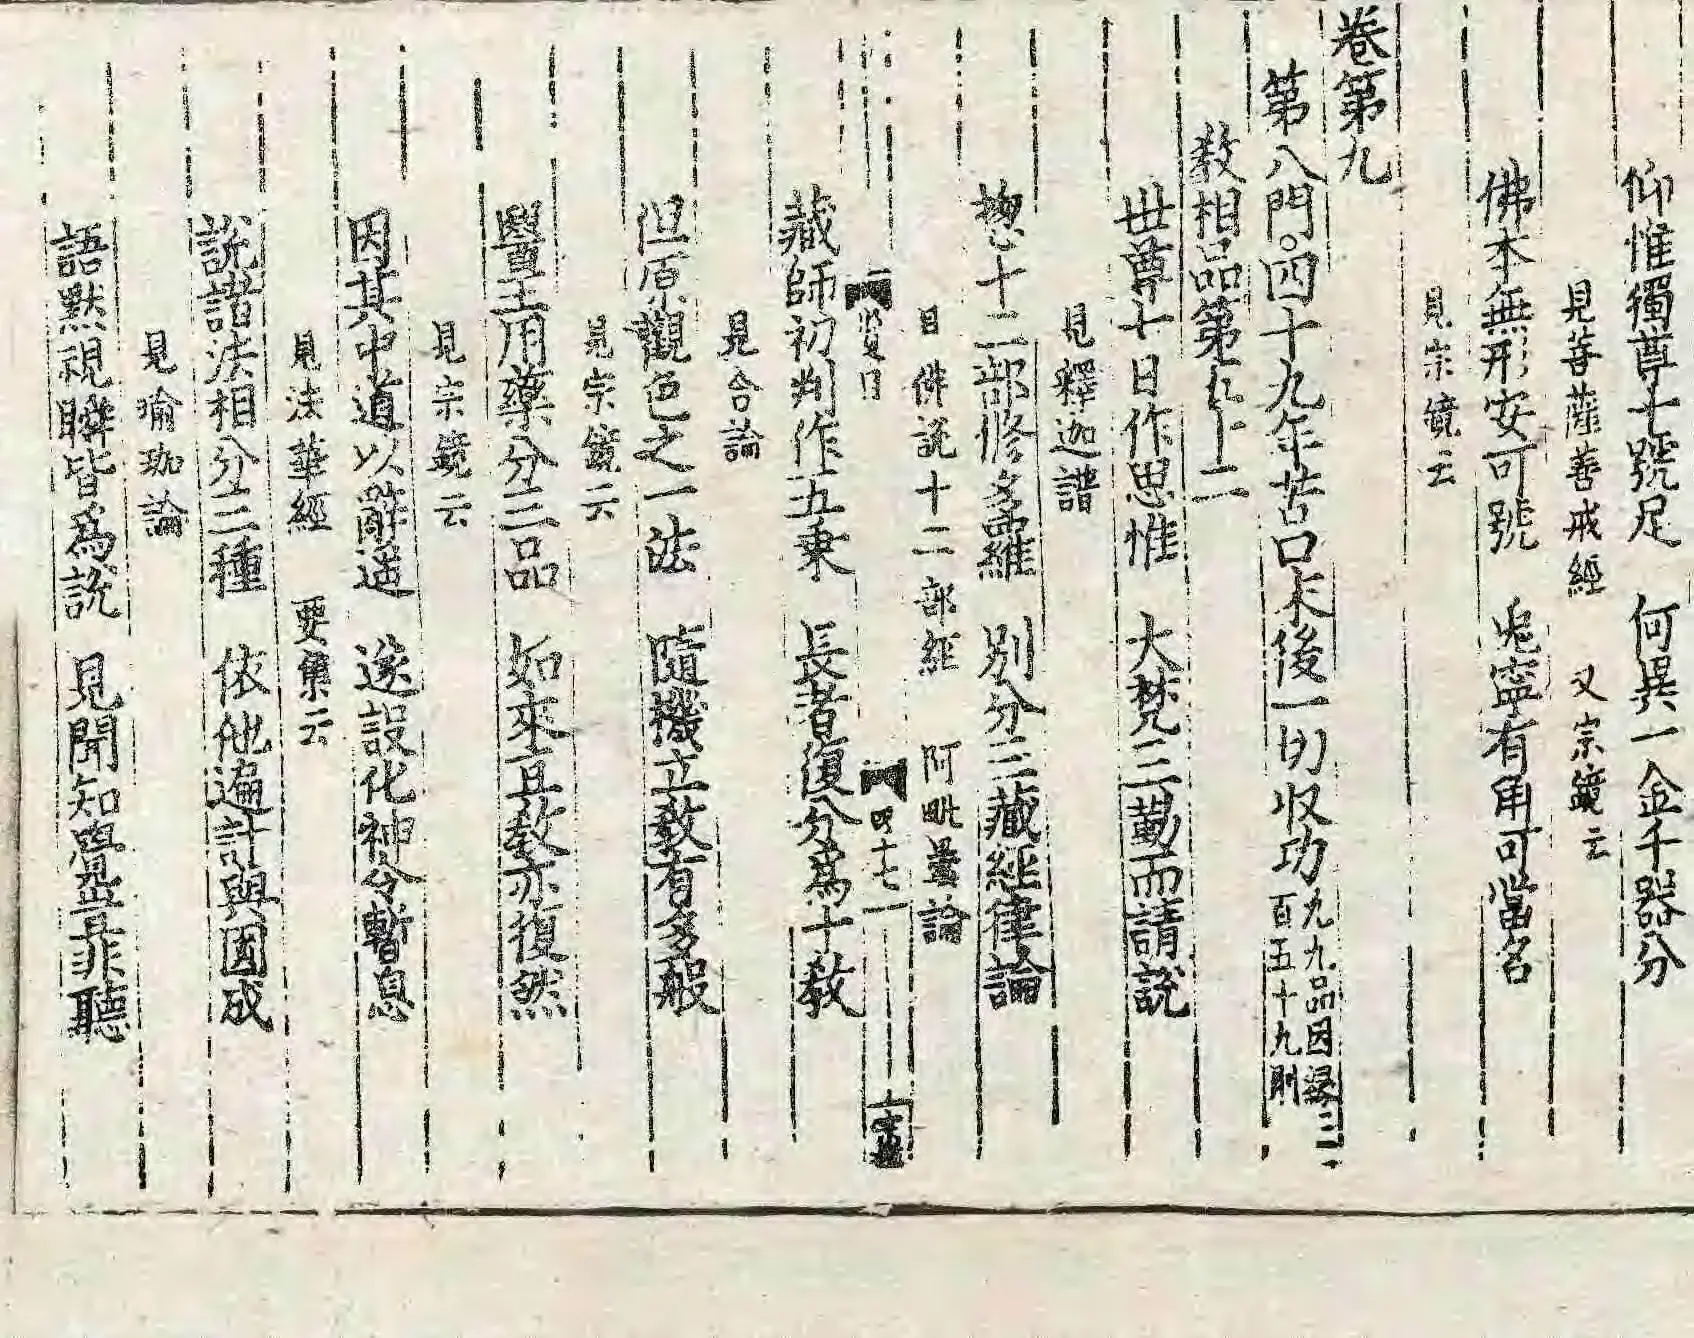 仰惟獨尊十號足　何異一金千器分
見菩薩善戒經　又宗鏡云
佛本無形安可號　兎寧有角可當名
見宗鏡云
卷第九
第八門。四十九年苦口末後一切収功
九九品因縁三
百五十九則
教相品第九十二
世尊七日作思惟　大梵三勸而請說
見釋迦譜
㹅十二部修多羅　別分三藏經律論
目佛說十二部經　阿毗曇論
賢目　四十七
藏師初判作五乗　長者復分爲十教
見合論
但原觀色之一法　隨機立教有多般
見宗鏡云
毉王用藥分三品　如來言教亦復然
見宗鏡云
因其中道以辭退　遂設化神令暫息
見法華經　要集云
說諸法相分三種　依他遍計與圓成
見瑜珈論
語默視瞬皆爲說　見聞知覺盡非聽